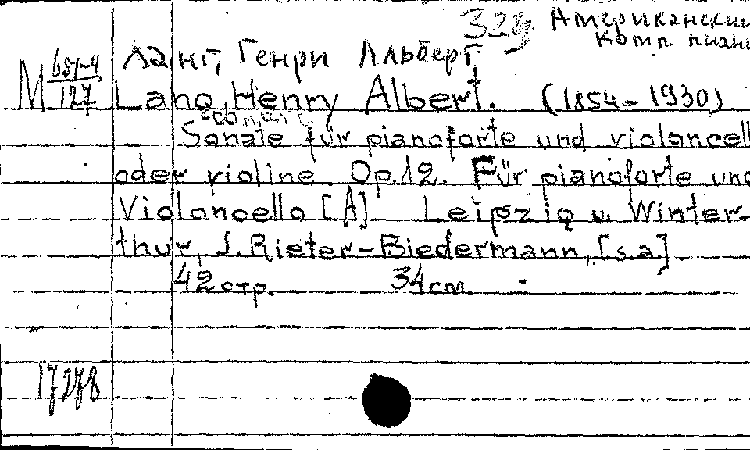 32g Американский
комп. пиан
Ланг, Генри Альберт
М 681-4
127
Lang, Henry Albert. (1854-1930)
Sonate für pianoforte und violoncell
oder violine. Op.12. Für pianoforte und
Violoncello [A] Leipzig u. Winter-
thur, J. Rieter-Biedermann, [s.a]
42 стр. 34 см.
17278